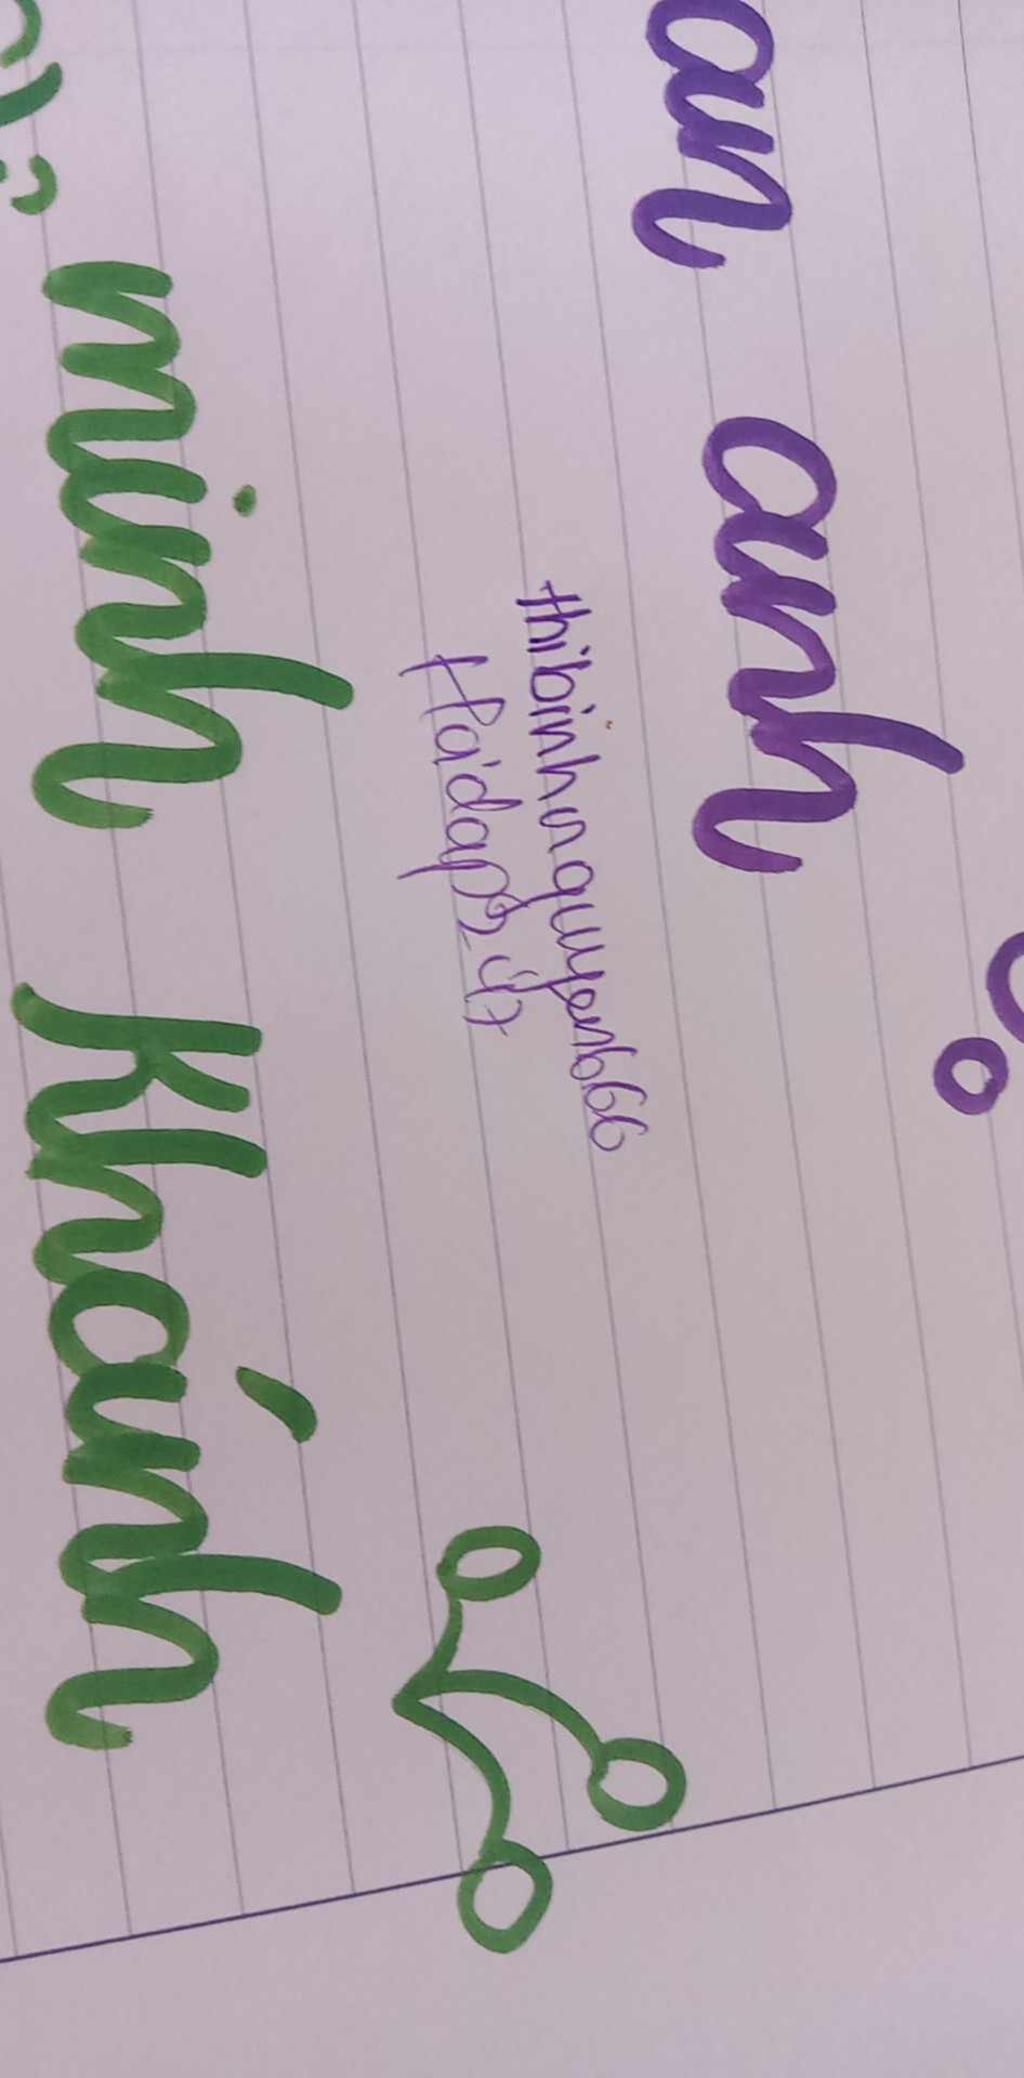 an anh
thibinhnguyen666
Hỏiđáp247
minh Khánh